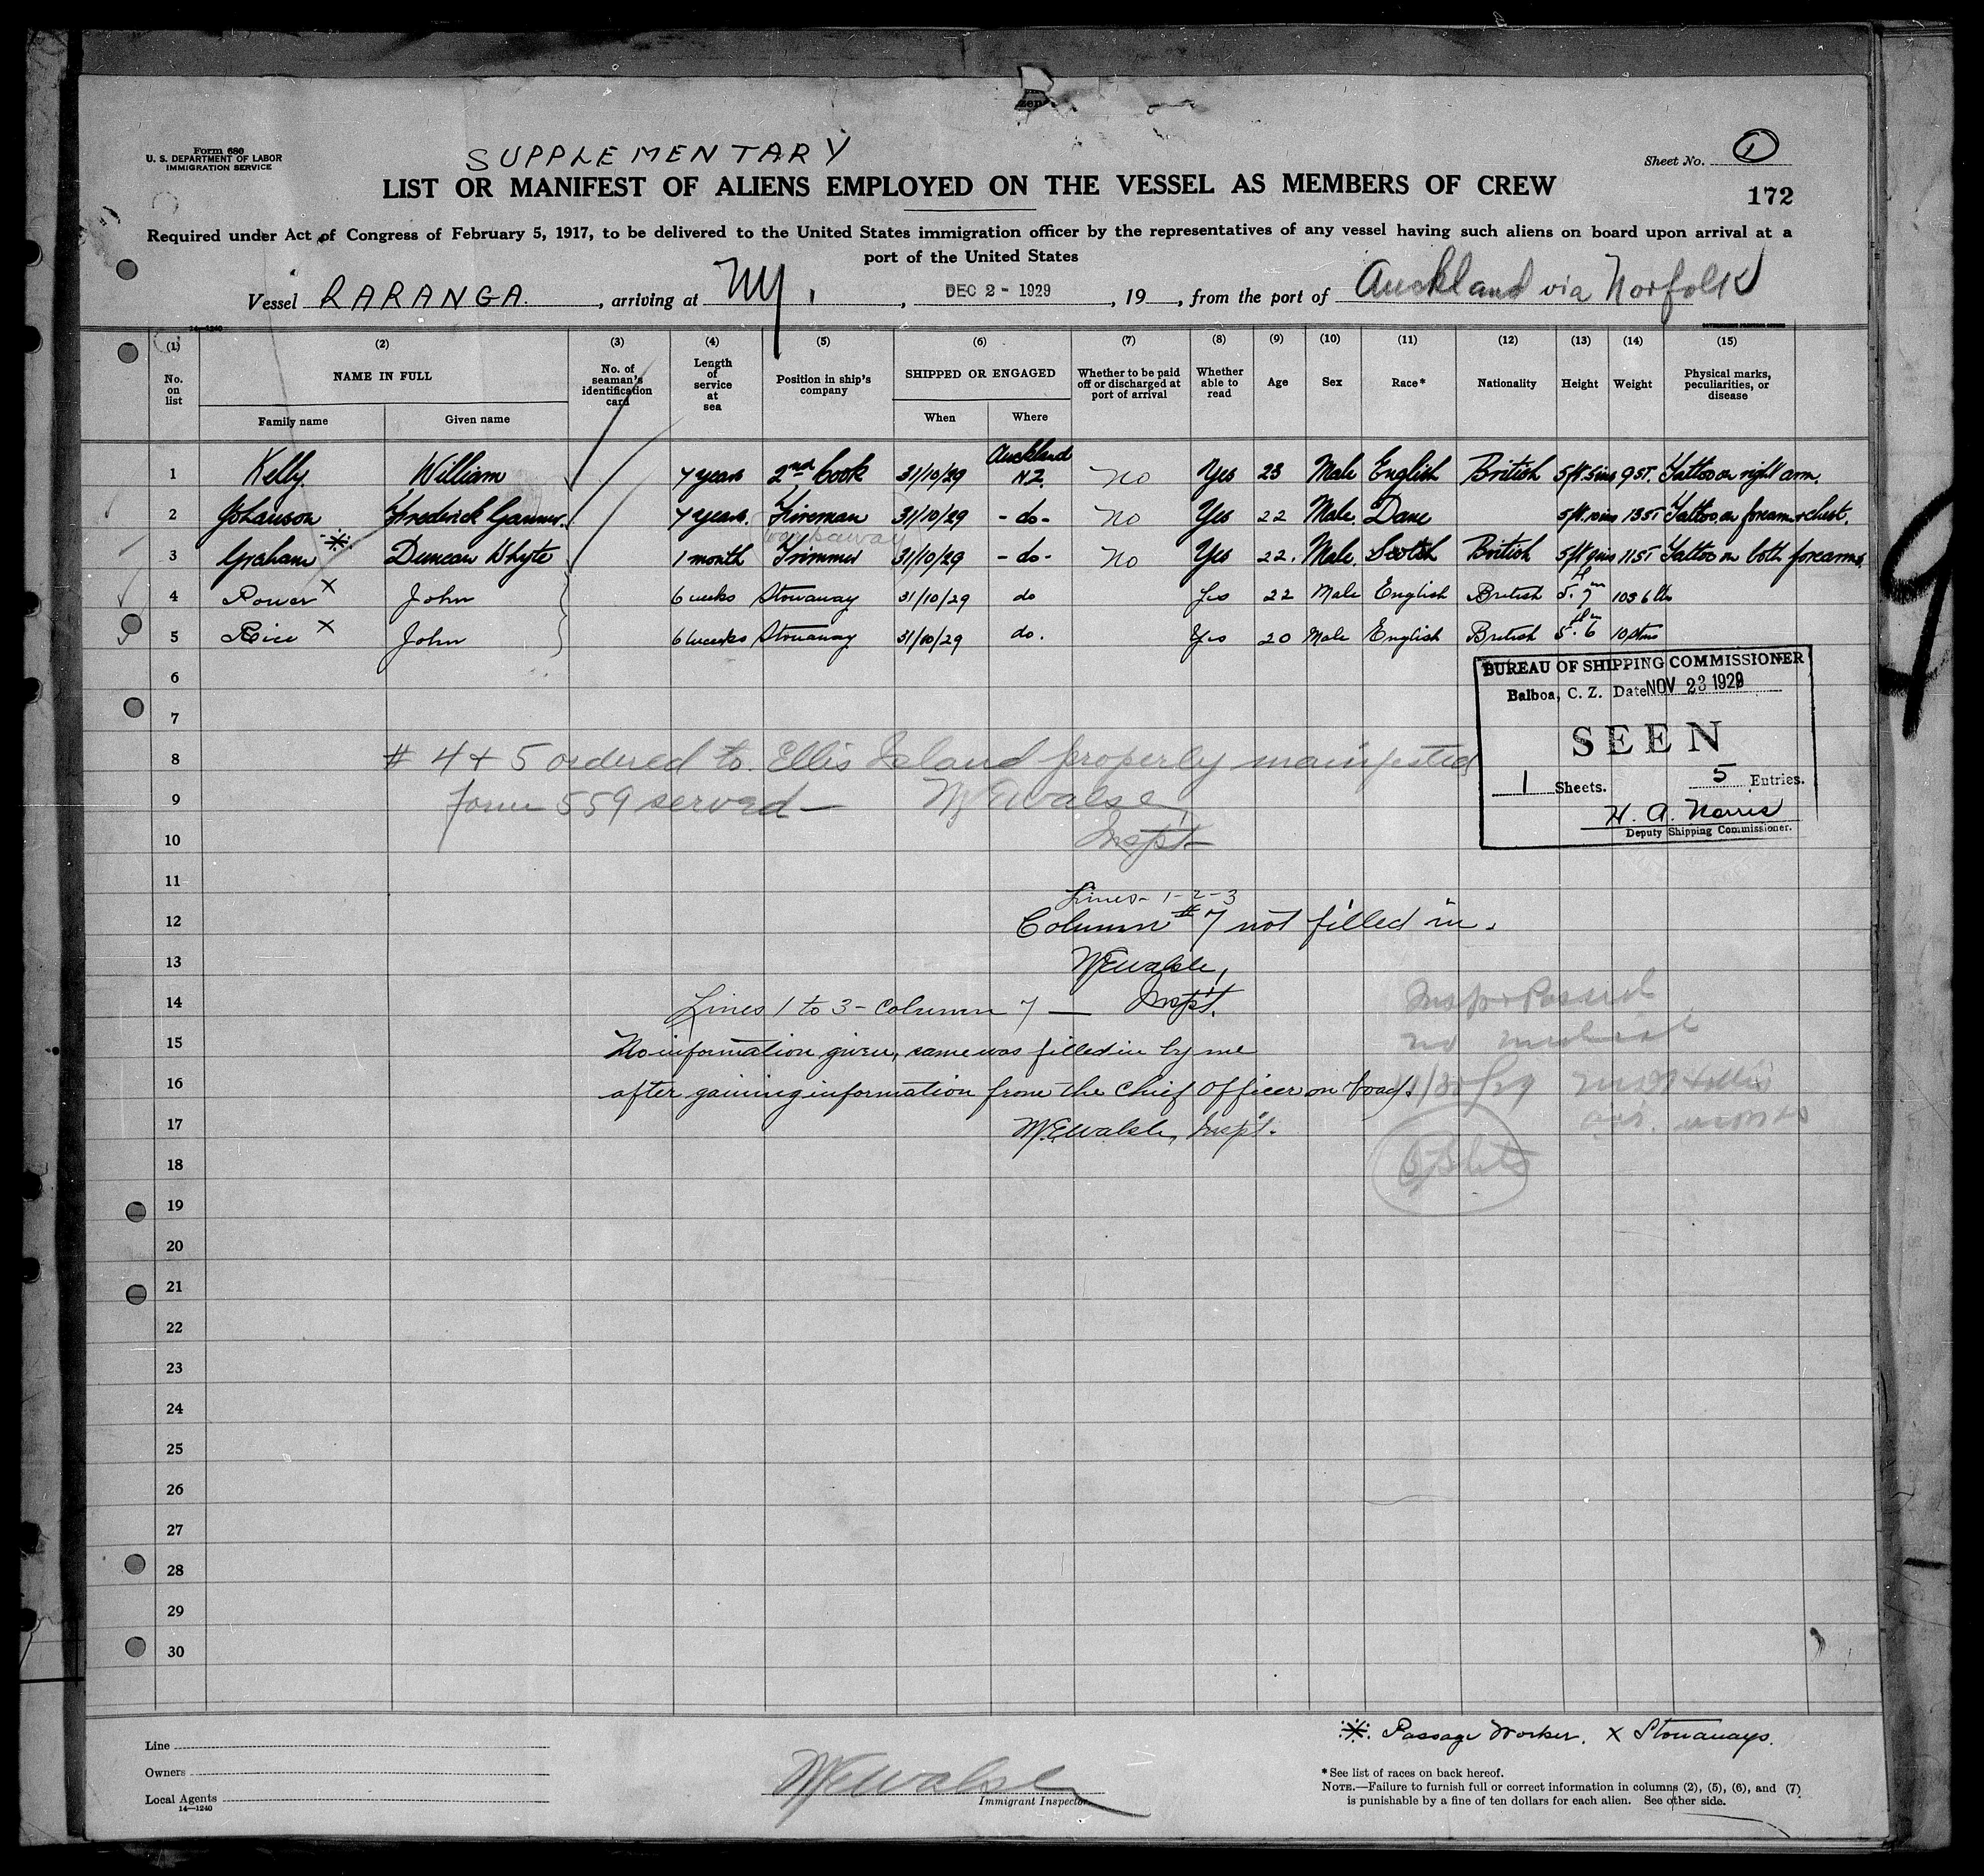 Form 680
U. S. DEPARTMENT OF LABOR
IMMIGRATION SERVICE
SUPPLEMENTARY
Sheet No. 1
LIST OR MANIFEST OF ALIENS EMPLOYED ON THE VESSEL AS MEMBERS OF CREW
172
Required under Act of Congress of February 5, 1917, to be delivered to the United States immigration officer by the representatives of any vessel having such aliens on board upon arrival at a
port of the United States
Vessel RARANGA., arriving at NY., DEC 2 - 1929, 19, from the port of Auckland via Norfolk
14—1240
(1) (2) (3) (4) (5) (6) (7) (8) (9) (10) (11) (12) (13) (14) (15)
No. on list
NAME IN FULL
Family name
Given name
No. of seaman's identification card
Length of service at sea
Position in ship's company
SHIPPED OR ENGAGED
When
Where
Whether to be paid off or discharged at port of arrival
Whether able to read
Age
Sex
Race*
Nationality
Height
Weight
Physical marks, peculiarities, or disease
1 Kelly William 7 years 2nd Cook 31/10/29 Auckland N.Z. No Yes 23 Male English British 5ft.5ins 9ST. Tattoo on right arm.
2 Johanson Frederick 7 years. Fireman 31/10/29 - do - No Yes 22 Male. Dane 5ft.10ins 13ST Tattoo on forearm & chest.
workaway
3 Graham Duncan Whyte 1 month Trimmer 31/10/29 - do - No Yes 22. Male. Scotch British 5ft 9ins 11ST Tattoo on both forearms.
4 Power x John 6 weeks Stowaway 31/10/29 do Yes 22 Male English British 5ft. 7in
5 Rice x John 6 weeks Stowaway 31/10/29 do. Yes 20 Male English British 5ft. 6in
6
7
BUREAU OF SHIPPING COMMISSIONER
Balboa, C. Z. Date NOV 23 1929
SEEN
1 Sheets. 5 Entries.
H. A. Norris
Deputy Shipping Commissioner.
8 # 4 + 5 ordered to Ellis Island properly manifested
9 form 559 served — W E Walsh
10 Insp't
11
Lines - 1-2-3
12 Column # 7 not filled in.
13 W E Walsh,
14 Lines 1 to 3 - Column 7 — Insp't.
15 No information given, same was filled in by me
16 after gaining information from the Chief Officer on board.
17 W. E. Walsh, Insp't.
Insp & Passed
no
11/30/29
18
19
20
21
22
23
24
25
26
27
28
29
30
※ Passage Worker. x Stowaways.
Line
Owners
Local Agents
14—1240
W E Walsh
Immigrant Inspector.
* See list of races on back hereof.
NOTE.—Failure to furnish full or correct information in columns (2), (5), (6), and (7)
is punishable by a fine of ten dollars for each alien. See other side.